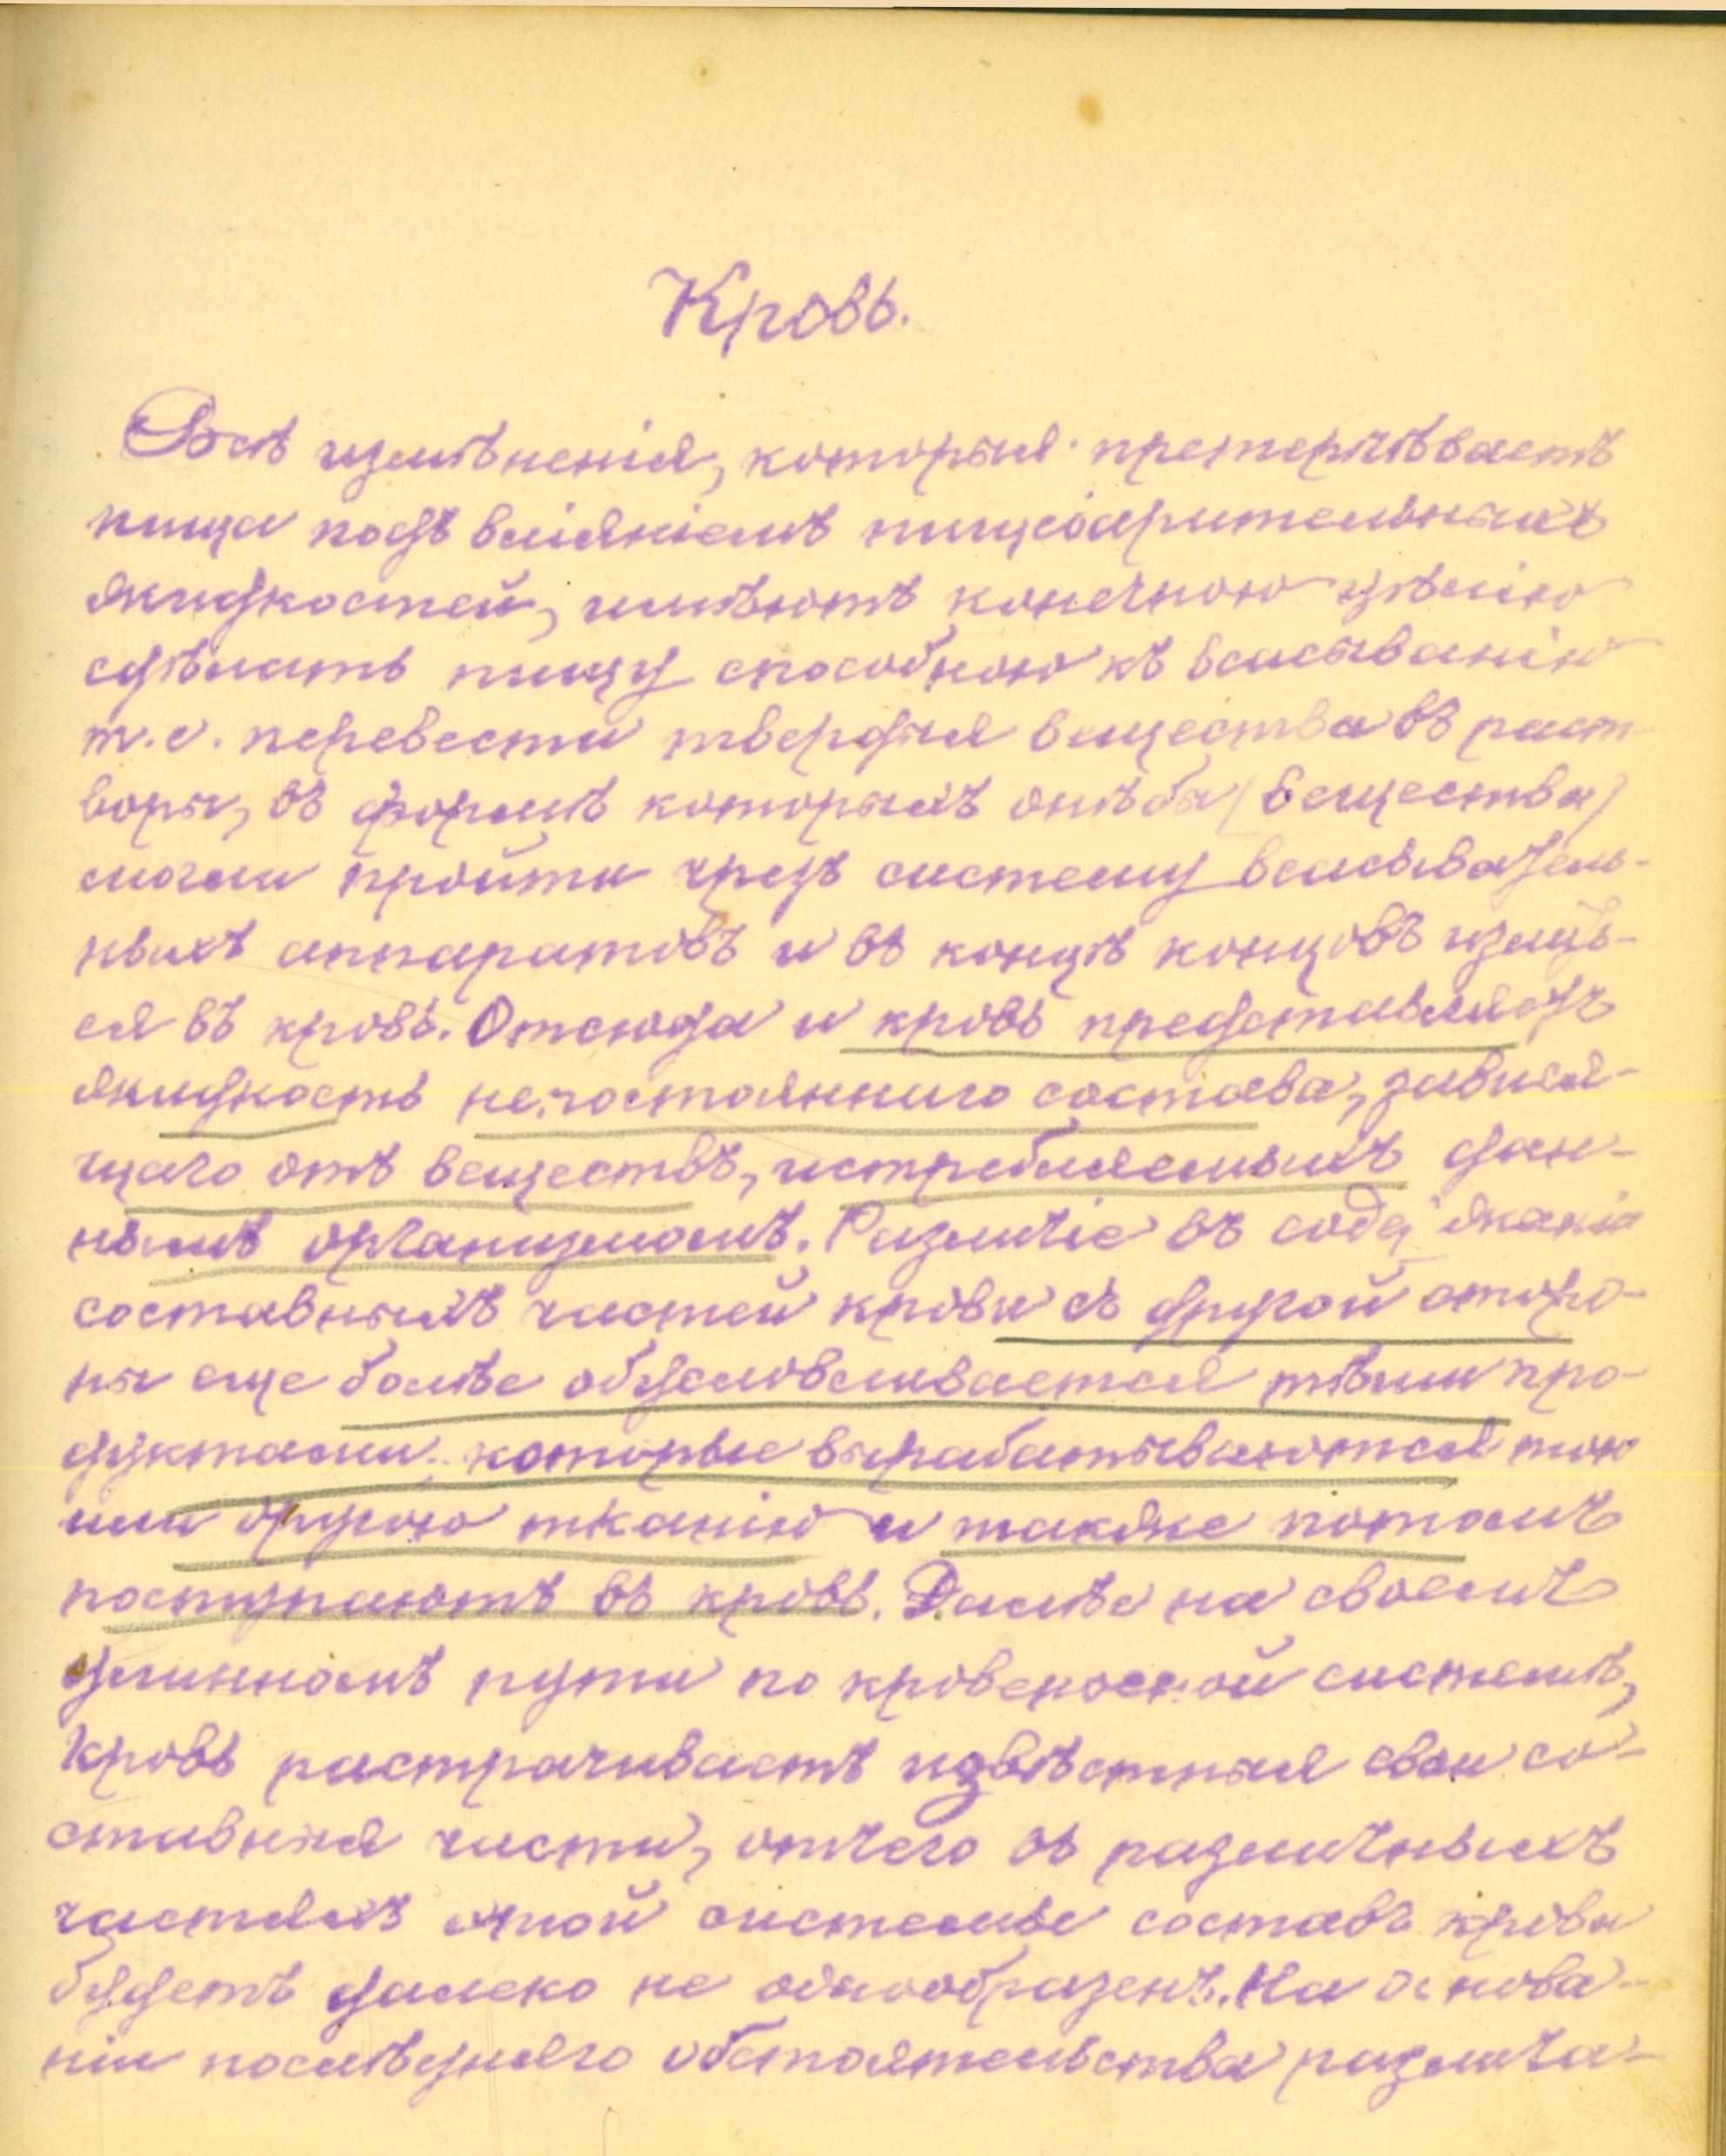 Кровь.
Всѣ измѣненія, которыя претерпѣваетъ
пища подъ вліяніемъ пищеварительныхъ
жидкостей, имѣютъ конечною цѣлію
сдѣлать пищу способною къ всасыванію
т.е. перевести твердыя вещества въ раст-
воры, въ формѣ которыхъ онѣ бы (вещества)
могли пройти чрезъ систему всасыватель-
ныхъ аппаратовъ и въ концѣ концовъ излить-
ся въ кровь. Отсюда и кровь представляетъ
жидкость непостояннаго состава, завися-
щаго отъ веществъ, истребляемыхъ дан-
нымъ организмомъ. Различіе въ содержаніи
составныхъ частей крови съ другой сторо-
ны еще болѣе обусловливается тѣми про-
дуктами которые вырабатываются тою
или другою тканію и также потомъ
поступаютъ въ кровь. Далѣе на своемъ
длинномъ пути по кровеносной системѣ,
кровь растрачиваетъ извѣстныя свои со-
ставныя части, отчего въ различныхъ
частяхъ этой системы составъ крови
будетъ далеко не однообразенъ. На основа-
ніи послѣдняго обстоятельства различа-